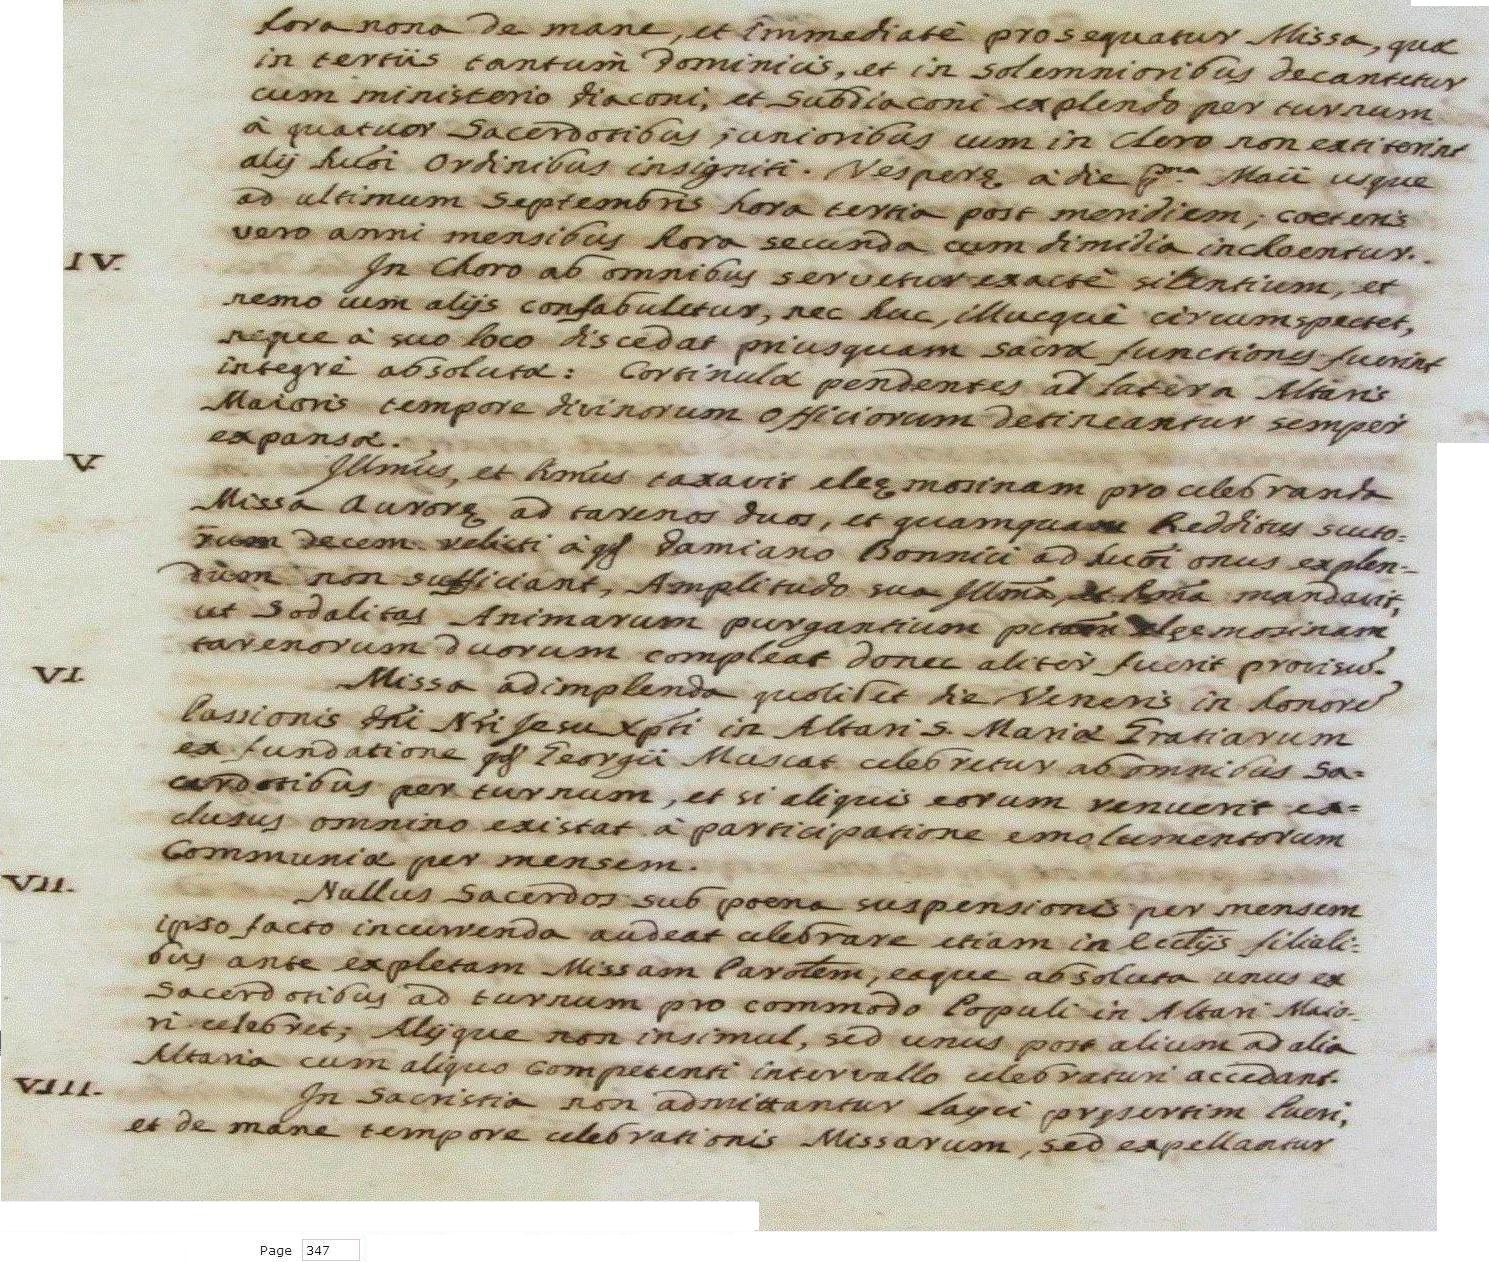 hora nona de mane, et immediatè prosequatur Missa, quæ
in tertiis tantum Dominicis, et in solemnioribus decantetur
cum ministerio diaconi, et Subdiaconi explendo per turnum
à quatuor Sacerdotibus junioribus cum in Clero non extiterint
alij huõi Ordinibus insigniti. Vesperę à die p.ma Maii usque
ad ultimum Septembris hora tertia post meridiem; coeteris
vero anni mensibus hora secunda cum dimidia inchoentur.
IV. In Choro ab omnibus servetur exactè silentium, et
nemo cum alijs confabuletur, nec huc, illucquè circumspectet,
neque à suo loco discedat priusquam sacræ functiones fuerint
integrè absolutæ: Cortinulæ pendentes al latera Altaris
Maioris tempore divinorum Officiorum detineantur semper
expansæ.
V. Illmũs, et Rmũs taxavit eleęmosinam pro celebranda
Missa Aurorę ad tarenos duos, et quamquam Redditus scuto=
rum decem relicti à qđ Damiano Bonnici ad huõi onus explen=
dum non sufficiant, Amplitudo sua Illmã, et Rmã mandavit,
ut Sodalitas Animarum purgantium elęemosinam
tarenorum duorum compleat donec aliter fuerit provisũ.
VI. Missa adimplenda quolibet die Veneris in honore
Passionis dñi Nr̃i Jesu Xp̃ti in Altari S. Mariæ Gratiarum
ex fundatione qđ Georgii Muscat celebretur ab omnibus Sa=
cerdotibus per turnum, et si aliquis eorum renuerit ex=
clusus omnino existat à participatione emolumentorum
Communiæ per mensem.
VII. Nullus Sacerdos sub poena suspensionis per mensem
ipso facto incurrenda audeat celebrare etiam in Ecclijs filiali=
bus ante expletam Missam Parolem, eaque absoluta unus ex
Sacerdotibus ad turnum pro commodo Populi in Altari Maio=
ri celebret; Alijque non insimul, sed unus post alium ad alia
Altaria cum aliquo Competenti intervallo celebraturi accedant.
VIII. In Sacristia non admittantur layci pręsertim Pueri,
et de mane tempore celebrationis Missarum, sed expellantur
Page 347